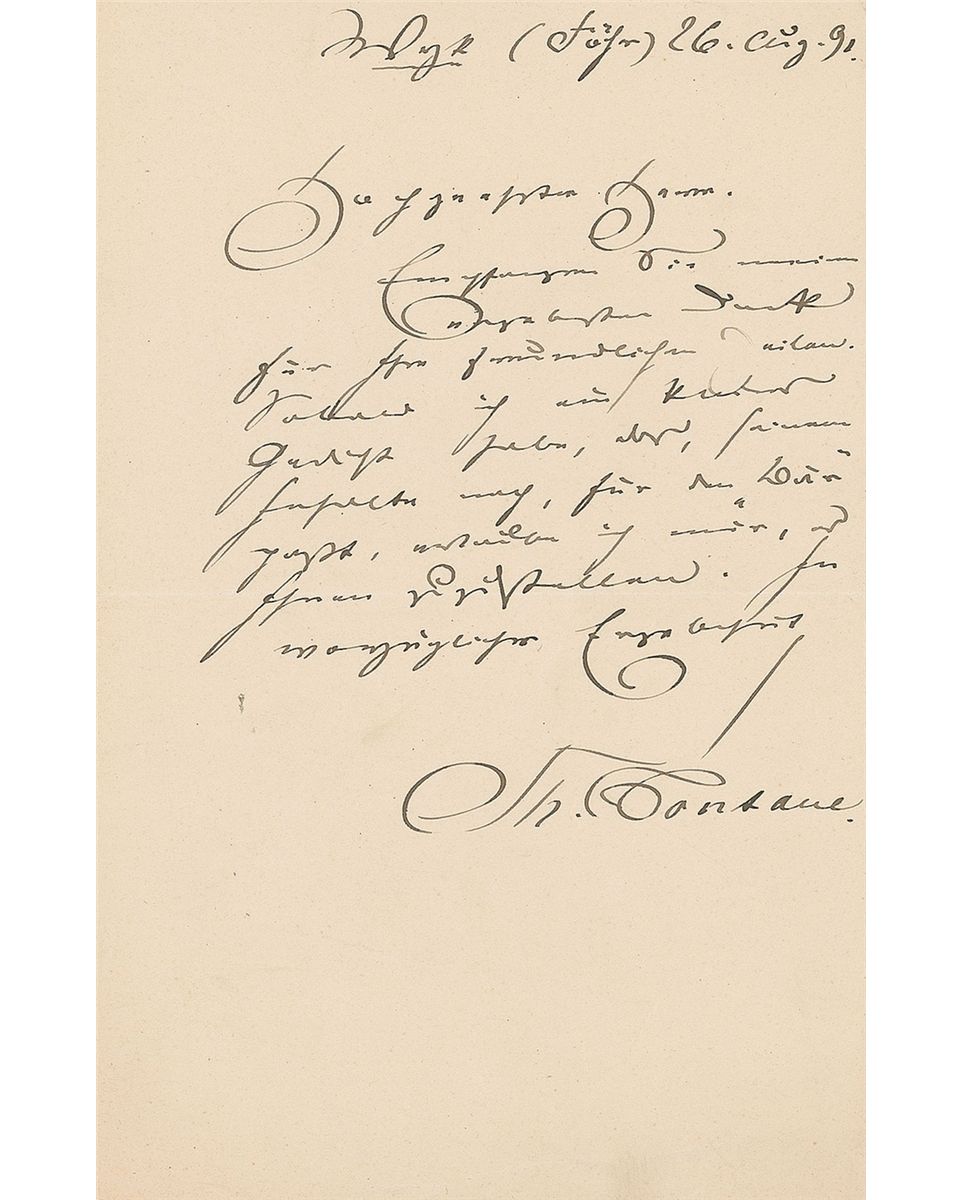 Wyk (Föhr) 26. Aug. 91.
Hochgeehrter Herr.
Empfangen Sie meinen
ergebensten Dank
für Ihre freundlichen Zeilen.
Sobald ich ein kleines
Gedicht habe, das, seinem
Inhalte nach, für den Bär
paßt, erlaube ich mir, es
Ihnen zuzustellen. In
vorzüglicher Ergebenheit
Th. Fontane.